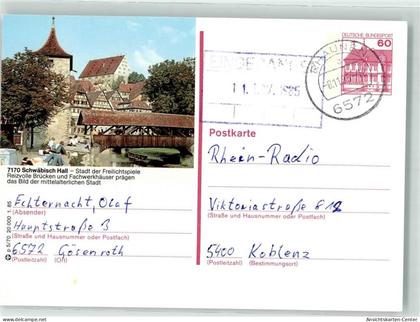 DEUTSCHE BUNDESPOST
60
RHAUNEN
6572
1985
Postkarte
7170 Schwäbisch Hall – Stadt der Freilichtspiele
Reizvolle Brücken und Fachwerkhäuser prägen
das Bild der mittelalterlichen Stadt
Echternacht, Olaf
(Absender)
Hauptstraße 3
(Straße und Hausnummer oder Postfach)
6572 Gösenroth
(Postleitzahl) (Ort)
p 5/70 20 000 1.85
Rhein-Radio
Viktoriastraße
(Straße und Hausnummer oder Postfach)
5400 Koblenz
(Postleitzahl) (Bestimmungsort)
www.ansichtskarten-center.de
Ansichtskarten-Center